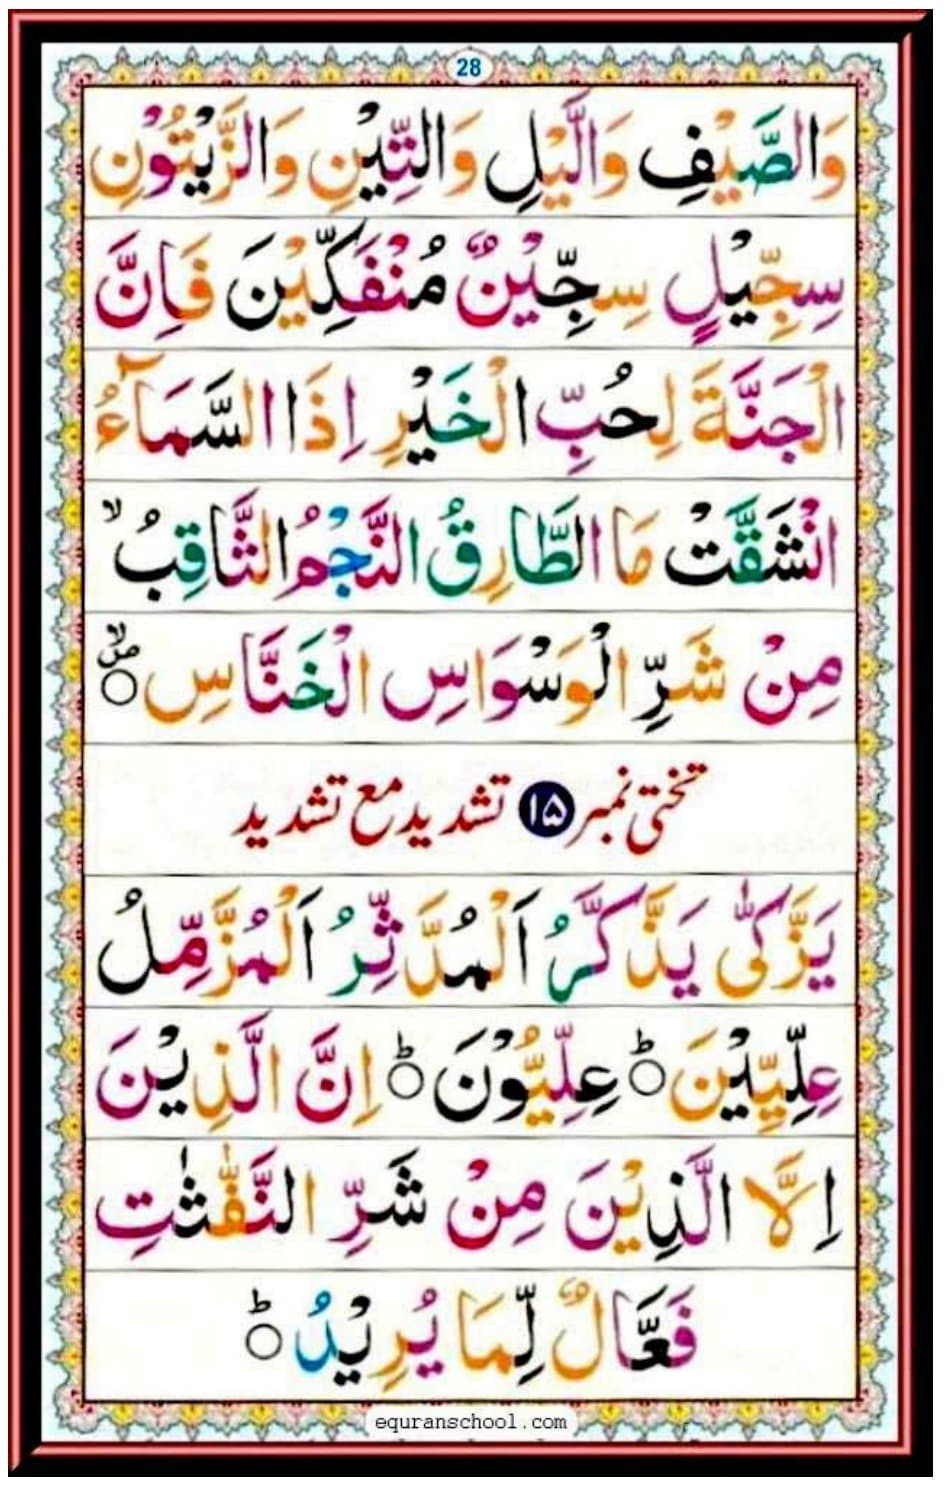 28
وَالصَّيْفِ وَالَّيْلِ وَالتِّيْنِ وَالزَّيْتُوْنِ
سِجِّيْلٍ سِجِّيْنٌ مُنْفَكِّيْنَ فَاِنَّ
الْجَنَّةَ لِحُبِّ الْخَيْرِ اِذَا السَّمَآءُ
انْشَقَّتْ مَا الطَّارِقُ النَّجْمُ الثَّاقِبُ ۙ
مِنْ شَرِّ الْوَسْوَاسِ الْخَنَّاسِ ○ صلا
تختی نمبر ۱۵ تشدید مع تشدید
يَزَّكّٰى يَذَّكَّرُ اَلْمُدَّثِّرُ اَلْمُزَّمِّلُ
عِلِّيِّيْنَ ○ؕ عِلِّيُّوْنَ ○ؕ اِنَّ الَّذِيْنَ
اِلَّا الَّذِيْنَ مِنْ شَرِّ النَّفّٰثٰتِ
فَعَّالٌ لِّمَا يُرِيْدُ ○ؕ
equranschool.com